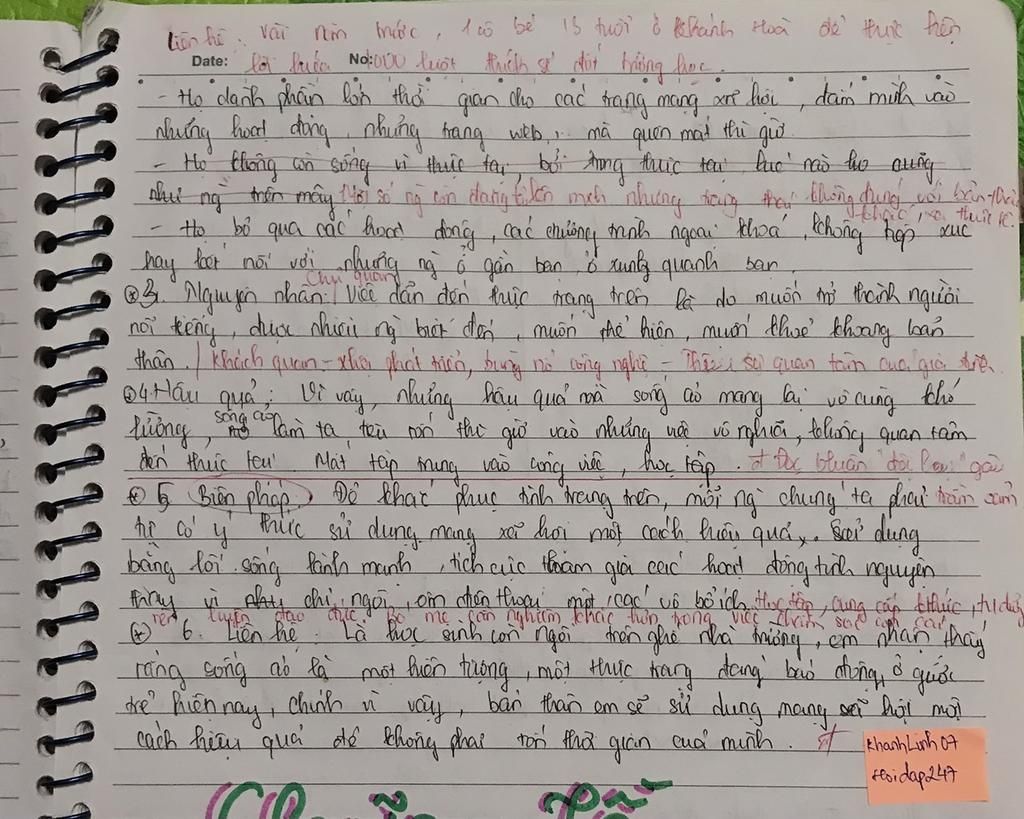 Liên hệ: vài năm trước, 1 cô bé 13 tuổi ở Khánh Hoà để thực hiện
Date: lời hứa No: 1000 lượt thích sẽ đốt trường học.
- Họ dành phần lớn thời gian cho các trang mạng xã hội, đắm mình vào
những hoạt động, những trang web,.. mà quên mất thì giờ.
- Họ không còn sống vì thực tại, bởi trong thực tại lúc nào họ cũng
như ng trên mây Một số ng còn đang biến mình những trạng thái không đúng với bản thân
khác, xa thực tế.
- Họ bỏ qua các hoạt động, các chương trình ngoại khoá, không tiếp xúc
hay kết nối với những ng ở gần bạn, ở xung quanh bạn.
3. Nguyên nhân: chủ quan Việc dẫn đến thực trạng trên là do muốn trở thành người
nổi tiếng, được nhiều ng biết đến, muốn thể hiện, muốn khoe khoang bản
thân. / khách quan - xhội phát triển, bùng nổ công nghệ - Thiếu sự quan tâm của gia đình
4. Hậu quả: Vì vậy, những hậu quả mà sống ảo mang lại vô cùng khó
lường, sống ảo làm ta tiêu tốn thì giờ vào những việc vô nghĩa, không quan tâm
đến thực tại. Mất tập trung vào công việc, học tập.
5 Biện pháp Để khắc phục tình trạng trên, mỗi ng chúng ta phải
tự có ý thức sử dụng mạng xã hội một cách hiệu quả, sử dụng
bằng lối sống lành mạnh, tích cực tham gia các hoạt động tình nguyện
thay vì chỉ ngồi ôm điện thoại một cách vô bổ ích học tập, cung cấp kthức,
rèn luyện đạo đức. Bố mẹ cần nghiêm khắc hơn trong việc chăm sóc con cái
6. Liên hệ. Là học sinh còn ngồi trên ghế nhà trường, em nhận thấy
rằng sống ảo là một hiện tượng, một thực trạng đang báo động ở giới
trẻ hiện nay, chính vì vậy, bản thân em sẽ sử dụng mạng xã hội một
cách hiệu quả để không phải tốn thời gian của mình.
KhanhLinh07
hoidap247